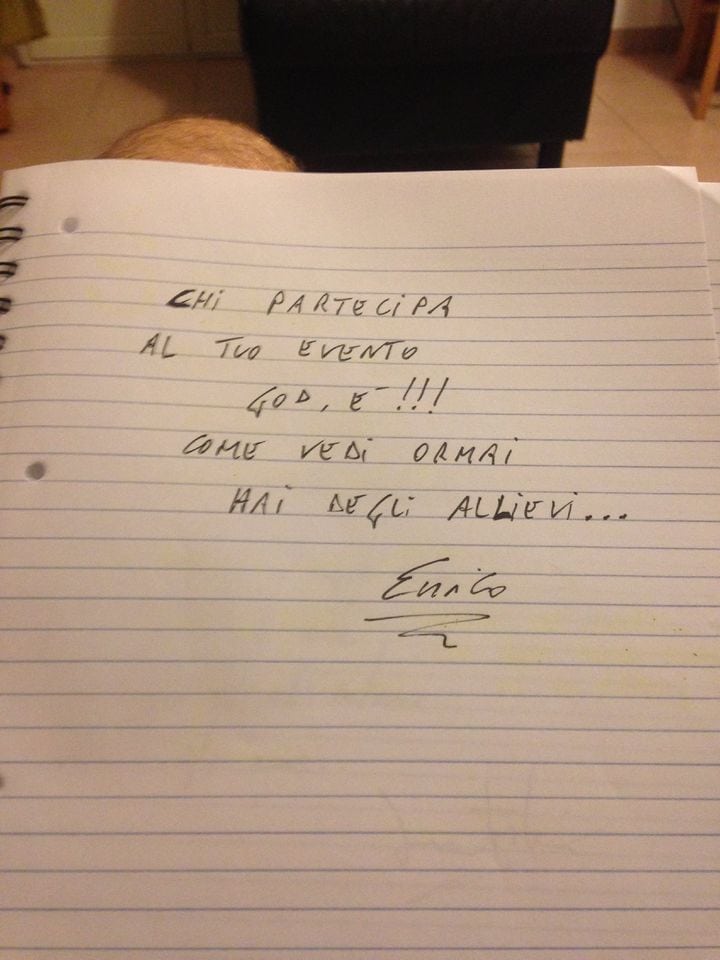 CHi PARTECiPA
AL TUO EVENTO
GOD, E' !!!
COME VEDi ORMAi
HAi DEGLi ALLiEVi...
Enrico